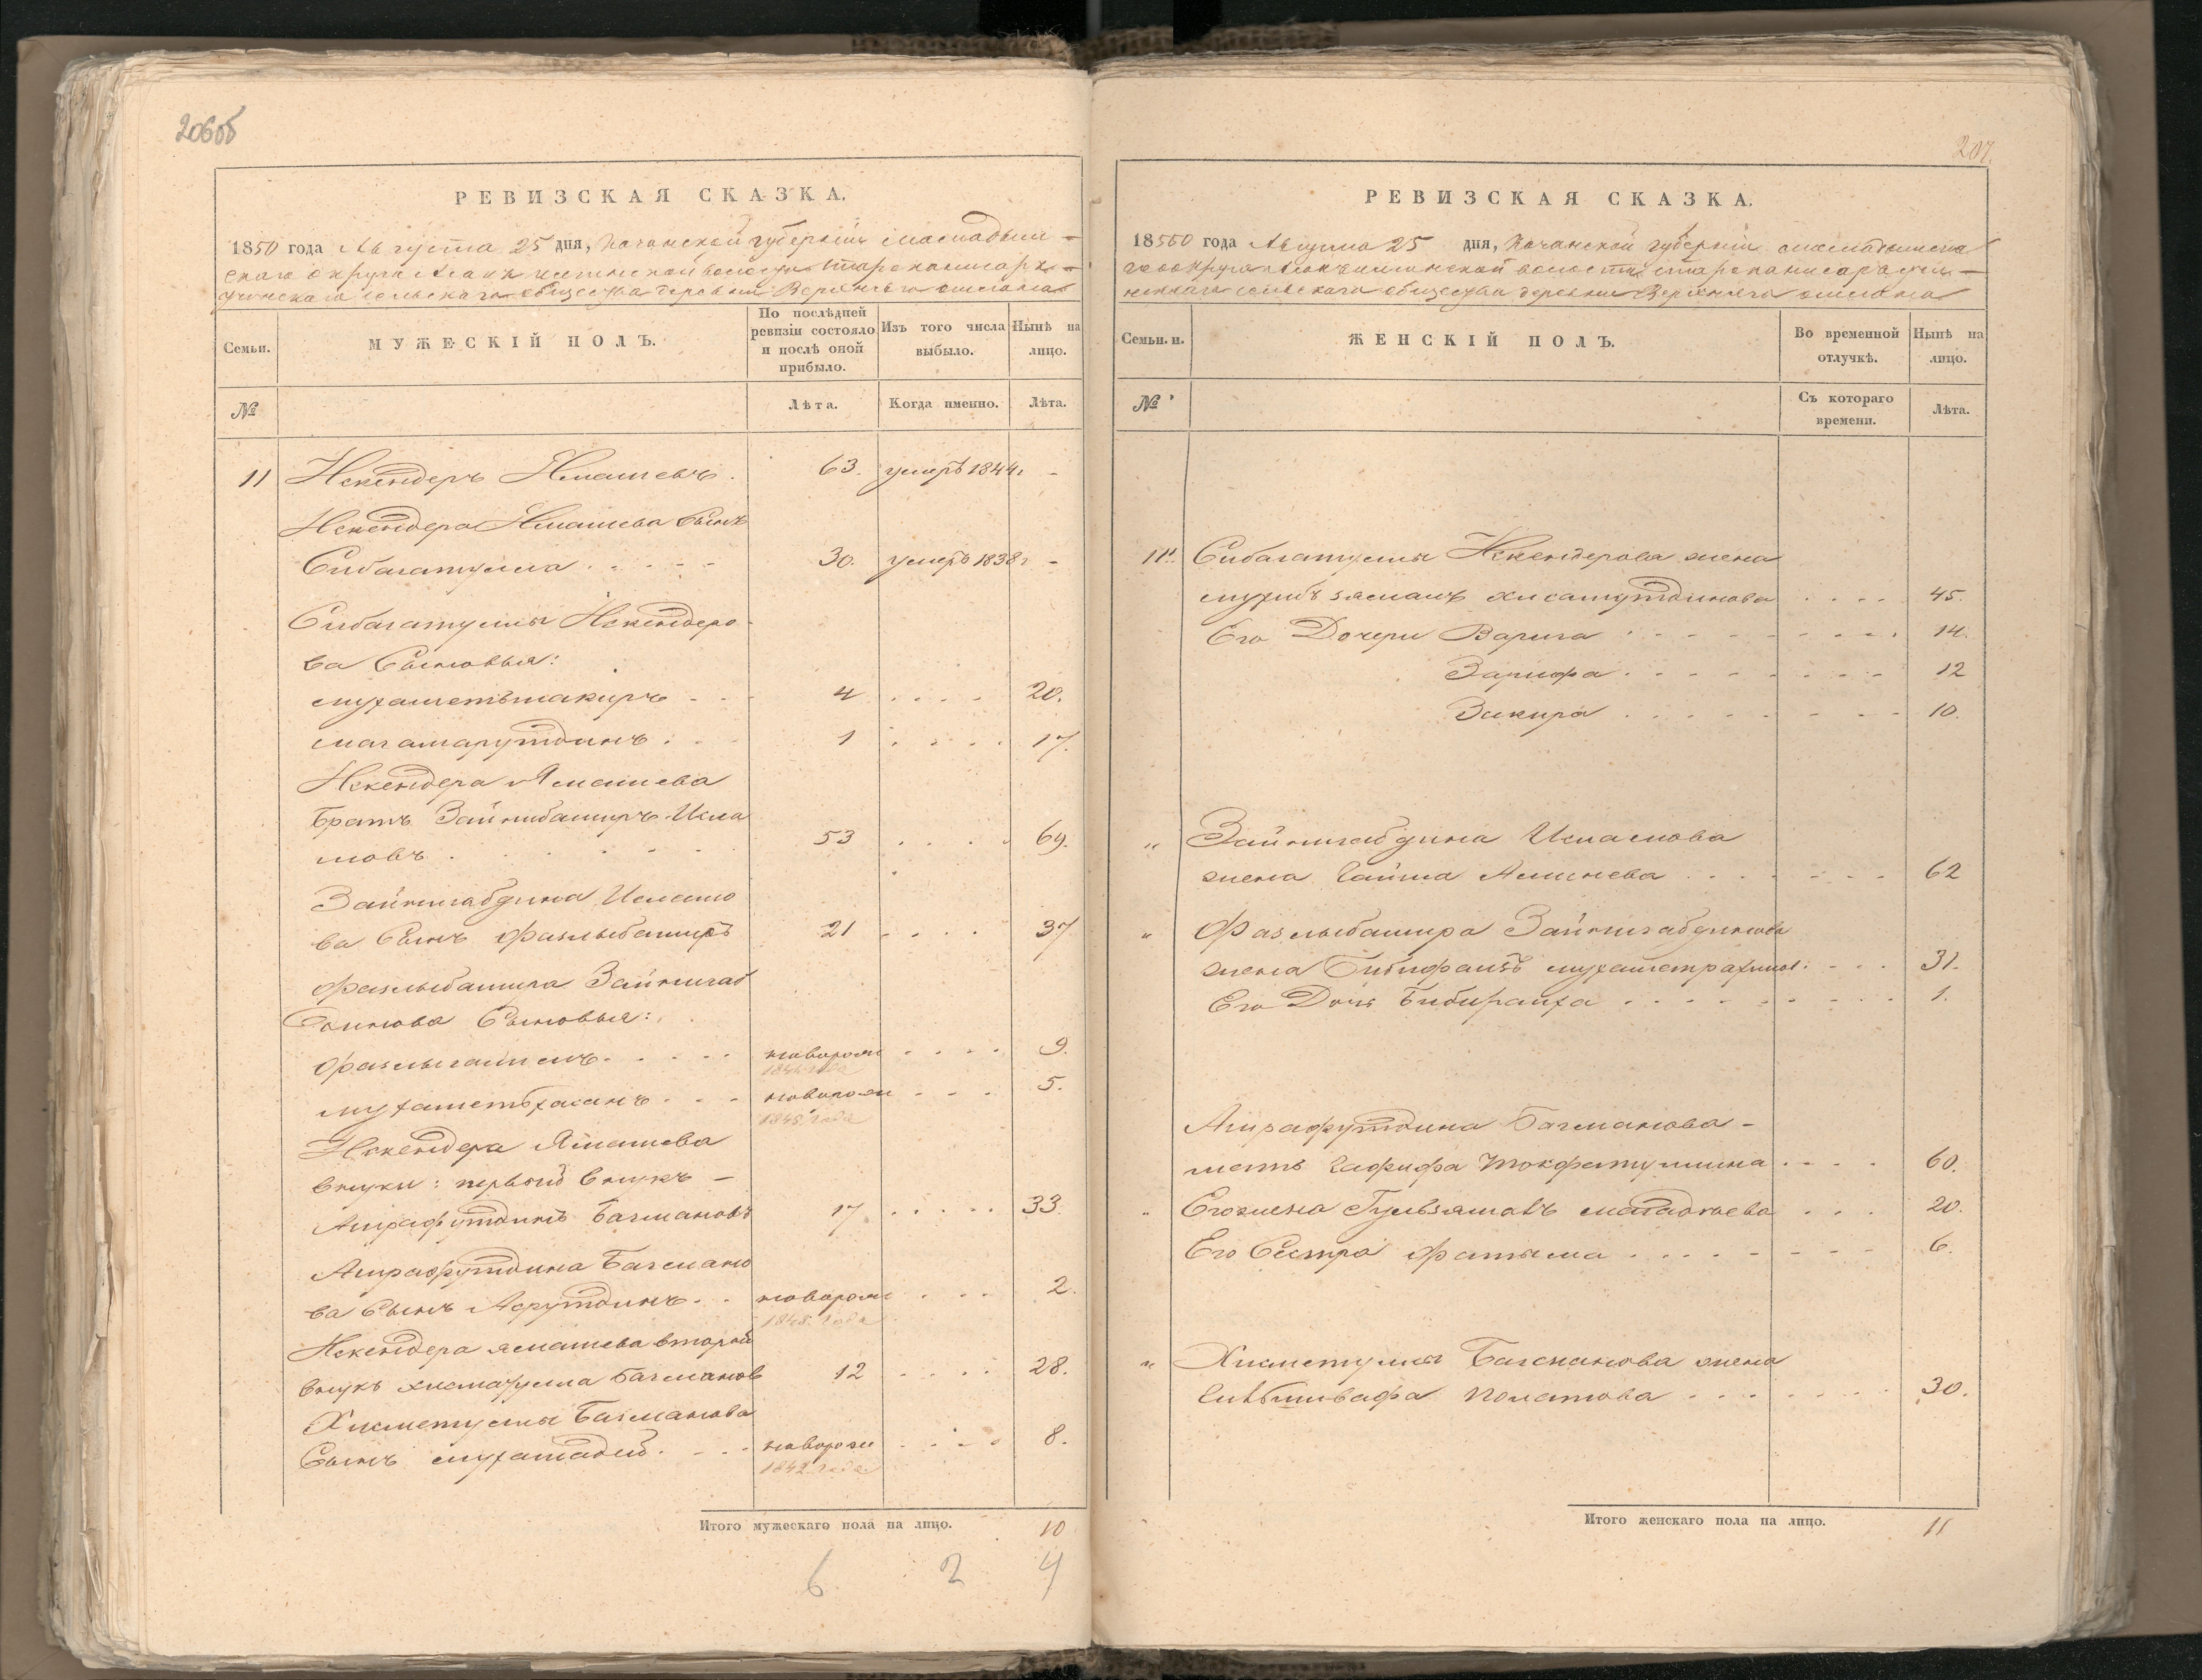 206об
РЕВИЗСКАЯ СКАЗКА.
1850 года Августа 25 дня, Казанской губернiи Мамадыш-
скаго округа волости
сельскаго общества деревни Верхняго
Семьи.
МУЖЕСКІЙ ПОЛЪ.
По послѣдней ревизіи состояло и послѣ оной прибыло.
Изъ того числа выбыло.
Нынѣ на лицо.
№
Лѣта.
Когда именно.
Лѣта.
11 Искендеръ Ямашевъ . 63. умеръ 1844г -
Искендера Ямашева Сынъ
Сибагатулла . . . . . 30. умеръ 1838г -
Сибагатуллы Искендеро-
ва Сыновья:
мухаметьшакиръ . . 4 . . . . 20.
магамарутдинъ . . . 1 . . . . 17.
Искендера Ямашева
Братъ Исла
мовъ . . . . . 53 . . . . 69.
Зайнигабдина Исламо
ва Сынъ Фазлыбаширъ 21 . . . . 37
Фазлыбашира Зайнигаб
динова Сыновья:
. . . . . новорож . . . . 9.
1841 года
мухаметьхасанъ . . . новорож . . . 5.
1845 года
Искендера Ямашева
внуки: первой внукъ -
Ашрафутдинъ Багмановъ 17 . . . . . 33
Ашрафутдина Багмано
ва Сынъ Асрутдинъ . . новорож . . . 2.
1848. года
Искендера ямашева второй
внукъ хисматулла Багмановъ 12 . . . . 28.
Хисметуллы Багманова
Сынъ мухамадей . . . новорож . . . . 8.
1842 года
Итого мужескаго пола на лицо. 10
6 2 4
207.
РЕВИЗСКАЯ СКАЗКА.
1850 года Августа 25 дня, Казанской губернiи мамадышска
го округа волости
сельскаго общества деревни Верхняго
Семьи. н.
ЖЕНСКІЙ ПОЛЪ.
Во временной отлучкѣ.
Нынѣ на лицо.
№
Съ котораго времени.
Лѣта.
11. Сибагатуллы Искендерова жена
хисамутдинова . . . . 45.
Его Дочери Варига . . . . . . . . 14.
Зарифа . . . . . . . . 12
Закира . . . . . . . . 10.
„ Зайнигабдина Исламова
жена Гайша . . . . . . . 62
„ Фазлыбашира Зайнигабдинова
жена мухаметрахим. . . . 31.
Его Дочь Бибираиха . . . . . . . . 1.
Ашрафутдина Багманова -
мать Гафифа . . . . 60.
„ Его жена . . . 20.
Его Сестра Фатыма . . . . . . . 6.
„ Хисметуллы Багманова жена
. . . . . . . 30.
Итого женскаго пола на лицо. 11